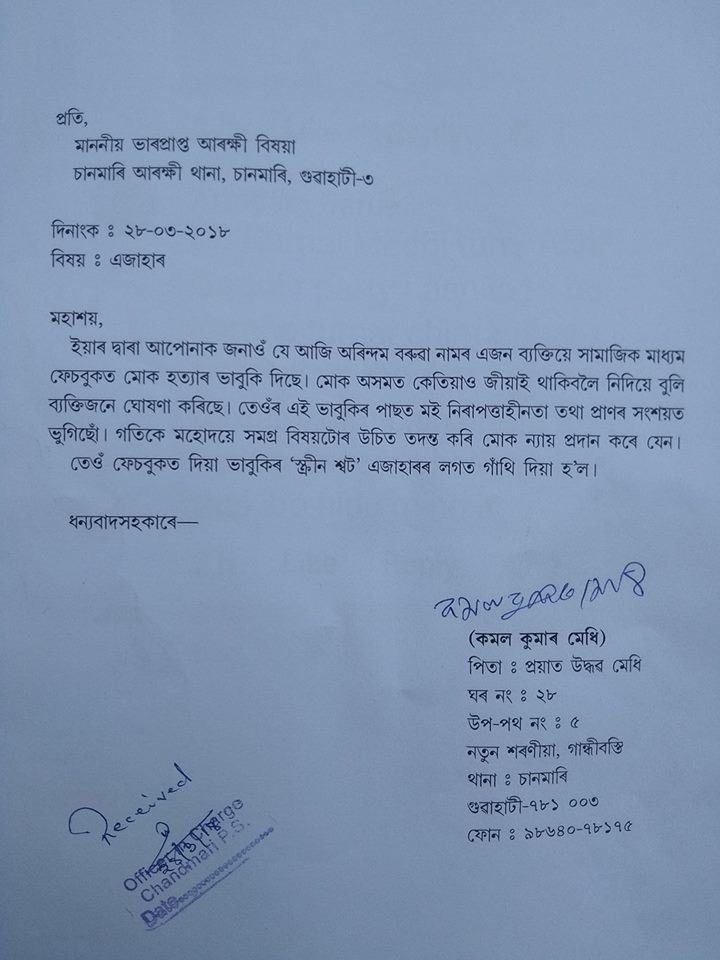 প্ৰতি,
মাননীয় ভাৰপ্ৰাপ্ত আৰক্ষী বিষয়া
চানমাৰি আৰক্ষী থানা, চানমাৰি, গুৱাহাটী-৩
দিনাংক : ২৮-০৩-২০১৮
বিষয় : এজাহাৰ
মহাশয়,
ইয়াৰ দ্বাৰা আপোনাক জনাওঁ যে আজি অৰিন্দম বৰুৱা নামৰ এজন ব্যক্তিয়ে সামাজিক মাধ্যম
ফেচবুকত মোক হত্যাৰ ভাবুকি দিছে। মোক অসমত কেতিয়াও জীয়াই থাকিবলৈ নিদিয়ে বুলি
ব্যক্তিজনে ঘোষণা কৰিছে। তেওঁৰ এই ভাবুকিৰ পাছত মই নিৰাপত্তাহীনতা তথা প্ৰাণৰ সংশয়ত
ভুগিছোঁ। গতিকে মহোদয়ে সমগ্ৰ বিষয়টোৰ উচিত তদন্ত কৰি মোক ন্যায় প্ৰদান কৰে যেন।
তেওঁ ফেচবুকত দিয়া ভাবুকিৰ ‘স্ক্ৰীন শ্বট’ এজাহাৰৰ লগত গাঁথি দিয়া হ'ল।
ধন্যবাদসহকাৰে—
কমল কুমাৰ মেধি
(কমল কুমাৰ মেধি)
পিতা : প্ৰয়াত উদ্ধৱ মেধি
ঘৰ নং : ২৮
উপ-পথ নং : ৫
নতুন শৰণীয়া, গান্ধীবস্তি
থানা : চানমাৰি
গুৱাহাটী-৭৮১ ০০৩
ফোন : ৯৮৬৪০-৭৮১৭৫
Received
Officer In Charge
Chandmari P.S.
Date